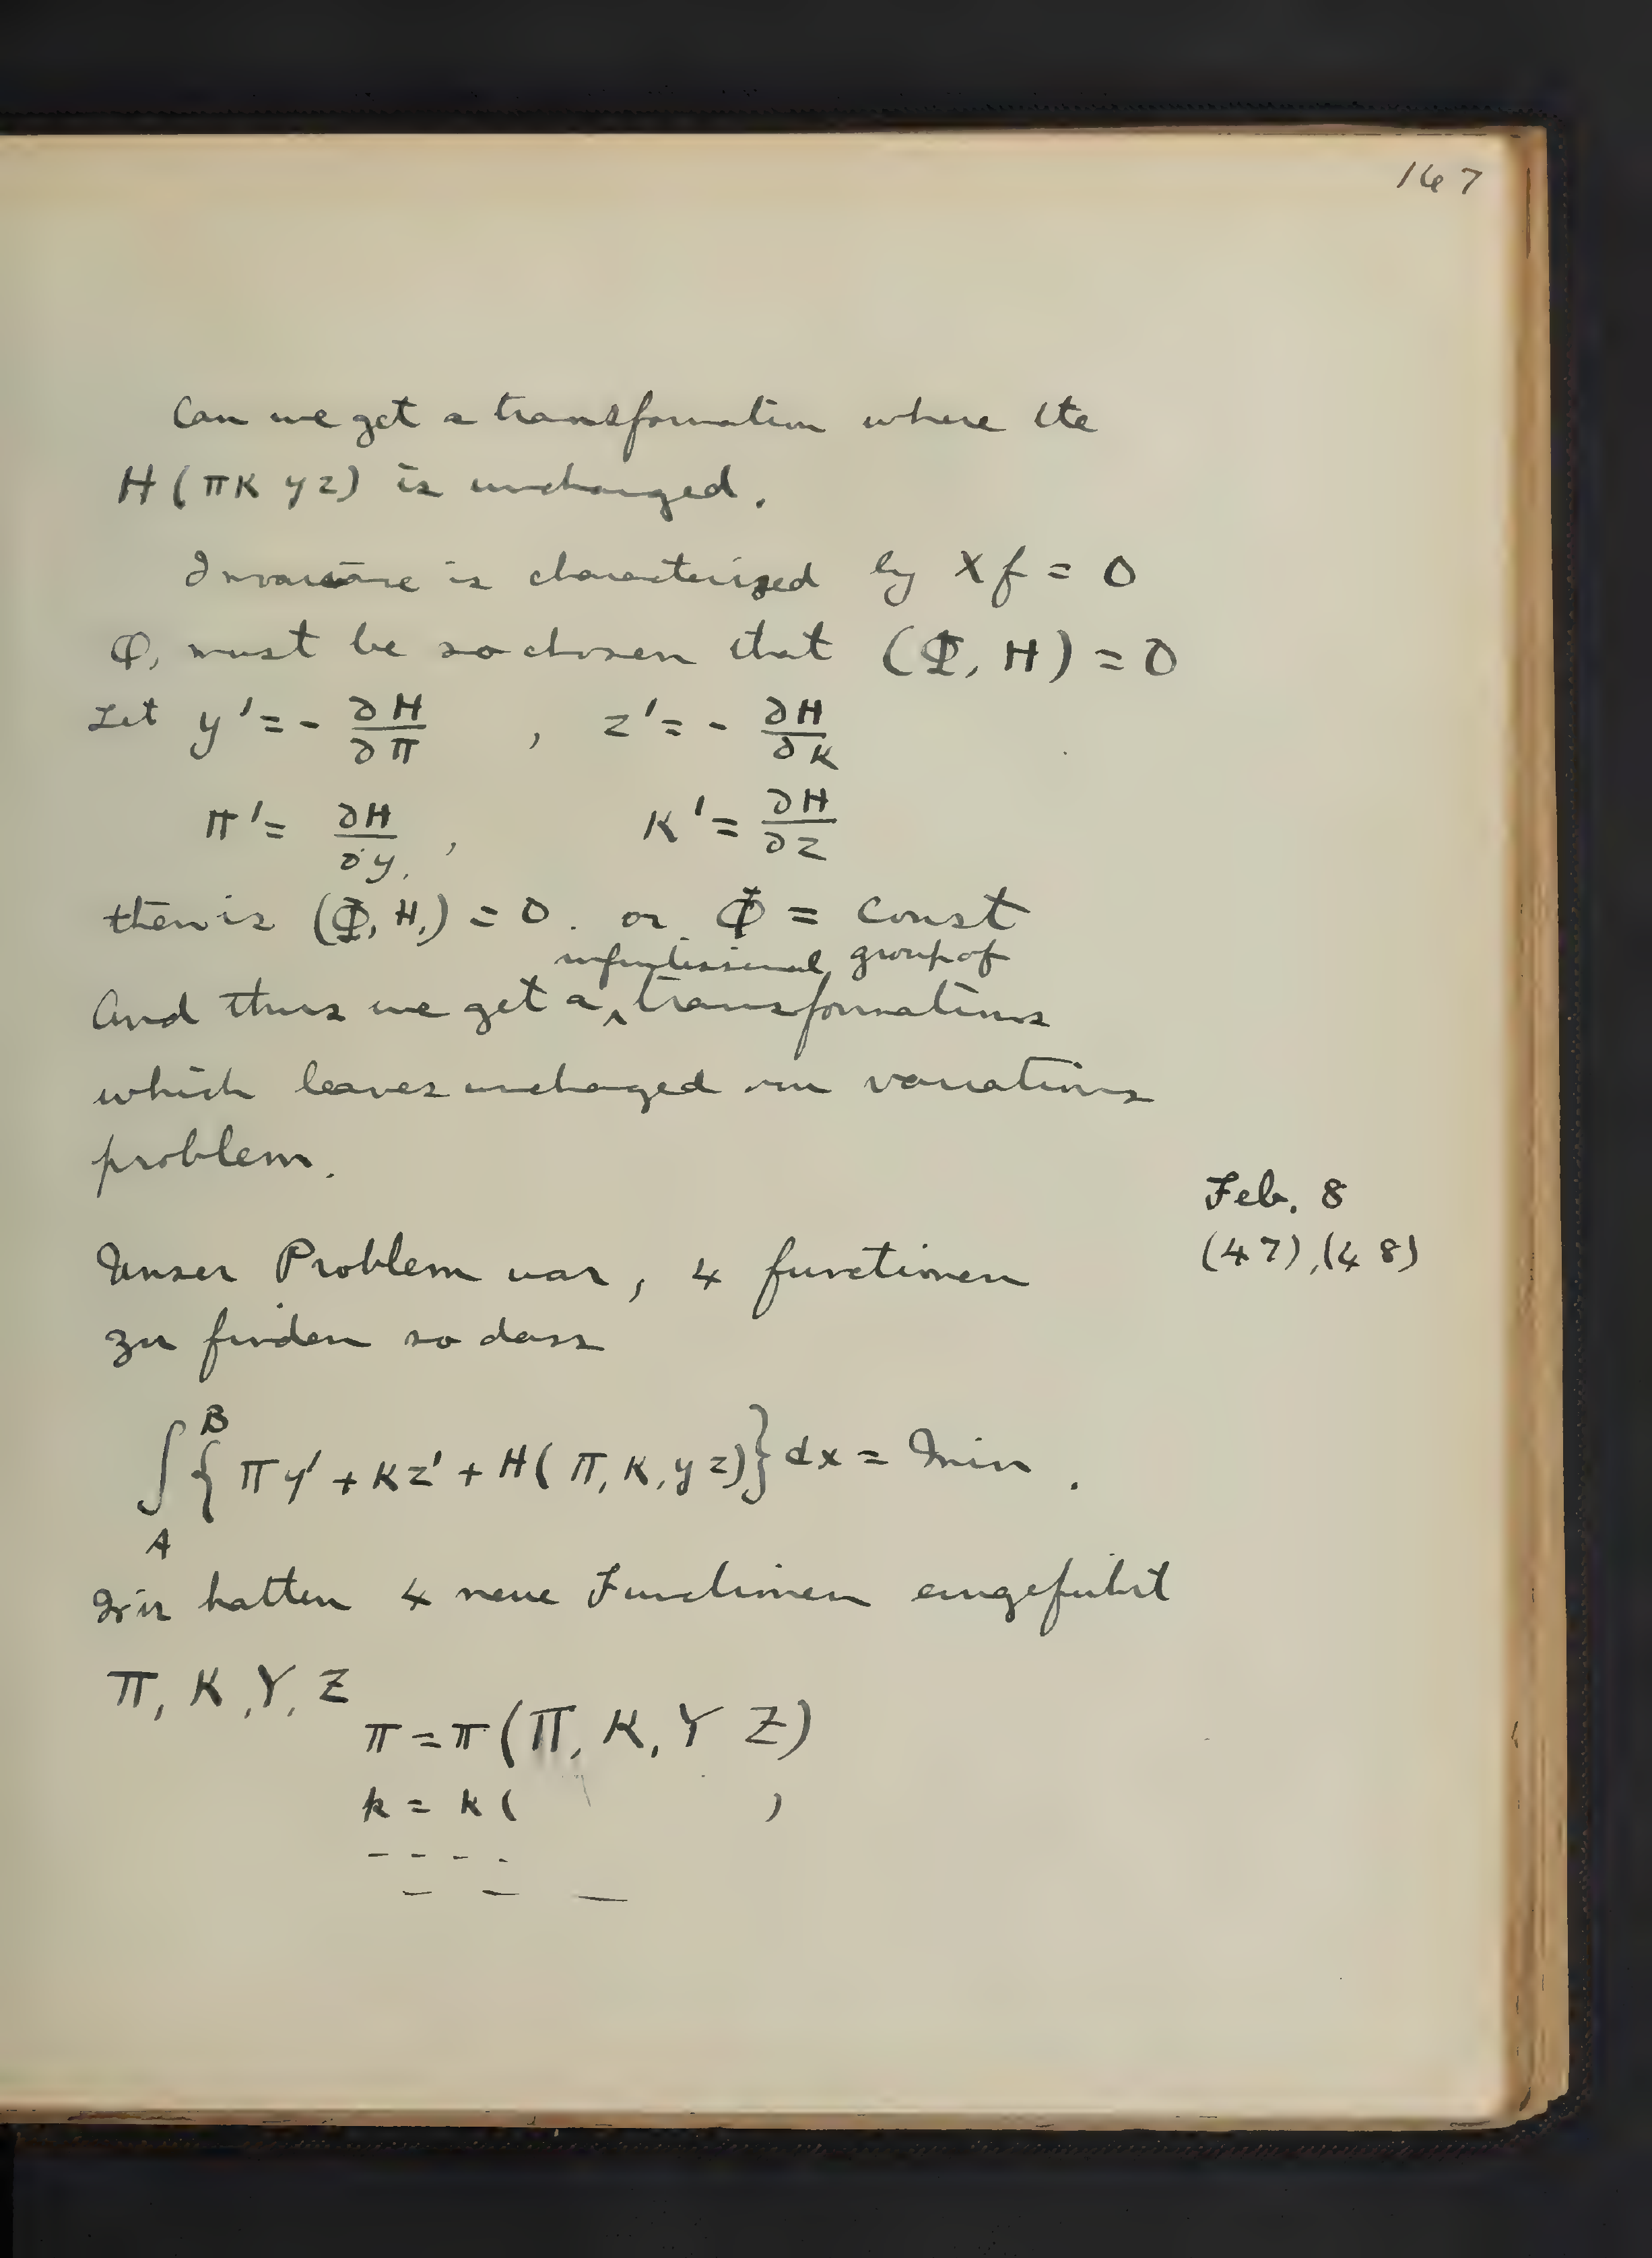 167
Can we get a transformation where the
H(πκ yz) is unchanged.
Invariance is characterized by Xf = 0
Φ, must be so chosen that (Φ, H) = 0
Let y' = - ∂H/∂π , z' = - ∂H/∂κ
π' = ∂H/∂y , κ' = ∂H/∂z
then is (Φ, H,) = 0. or Φ = const
infinitessimal group of
And thus we get a ‸ transformations
which leaves unchaged our variations
problem.
Feb. 8
(47), (48)
Unser Problem war, 4 functionen
zu finden so dass
∫_A^B { πy' + κz' + H(π, κ, y z)} dx = Min.
Wir hatten 4 neue Functionen eingefuhrt
Π, K, Y, Z
π = π(Π, K, Y Z)
k = κ( )
- - - -
- - -